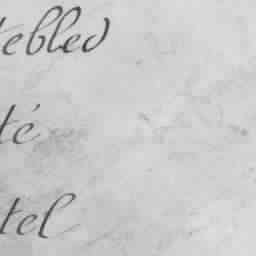 tebled
té
tel